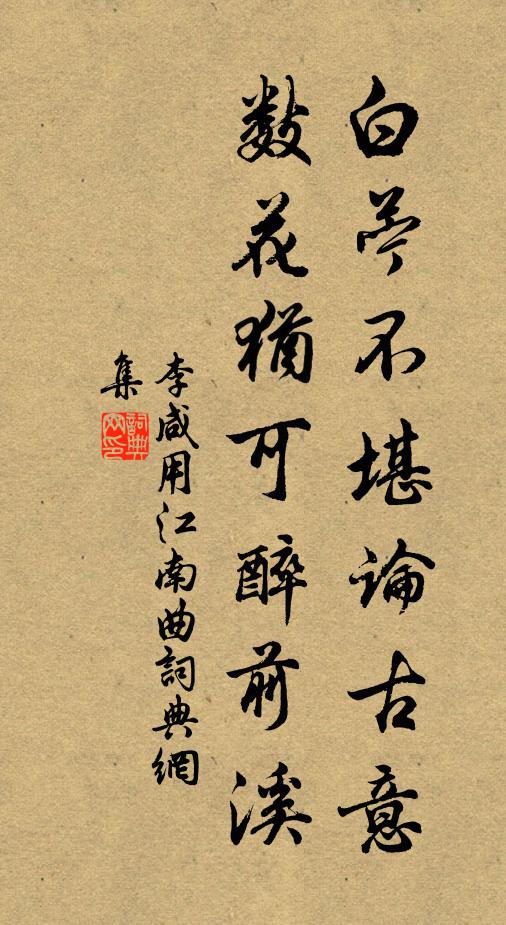 白苧不堪論古意
數花猶可醉前溪
李咸用江南曲詞典網
集
詞典網印